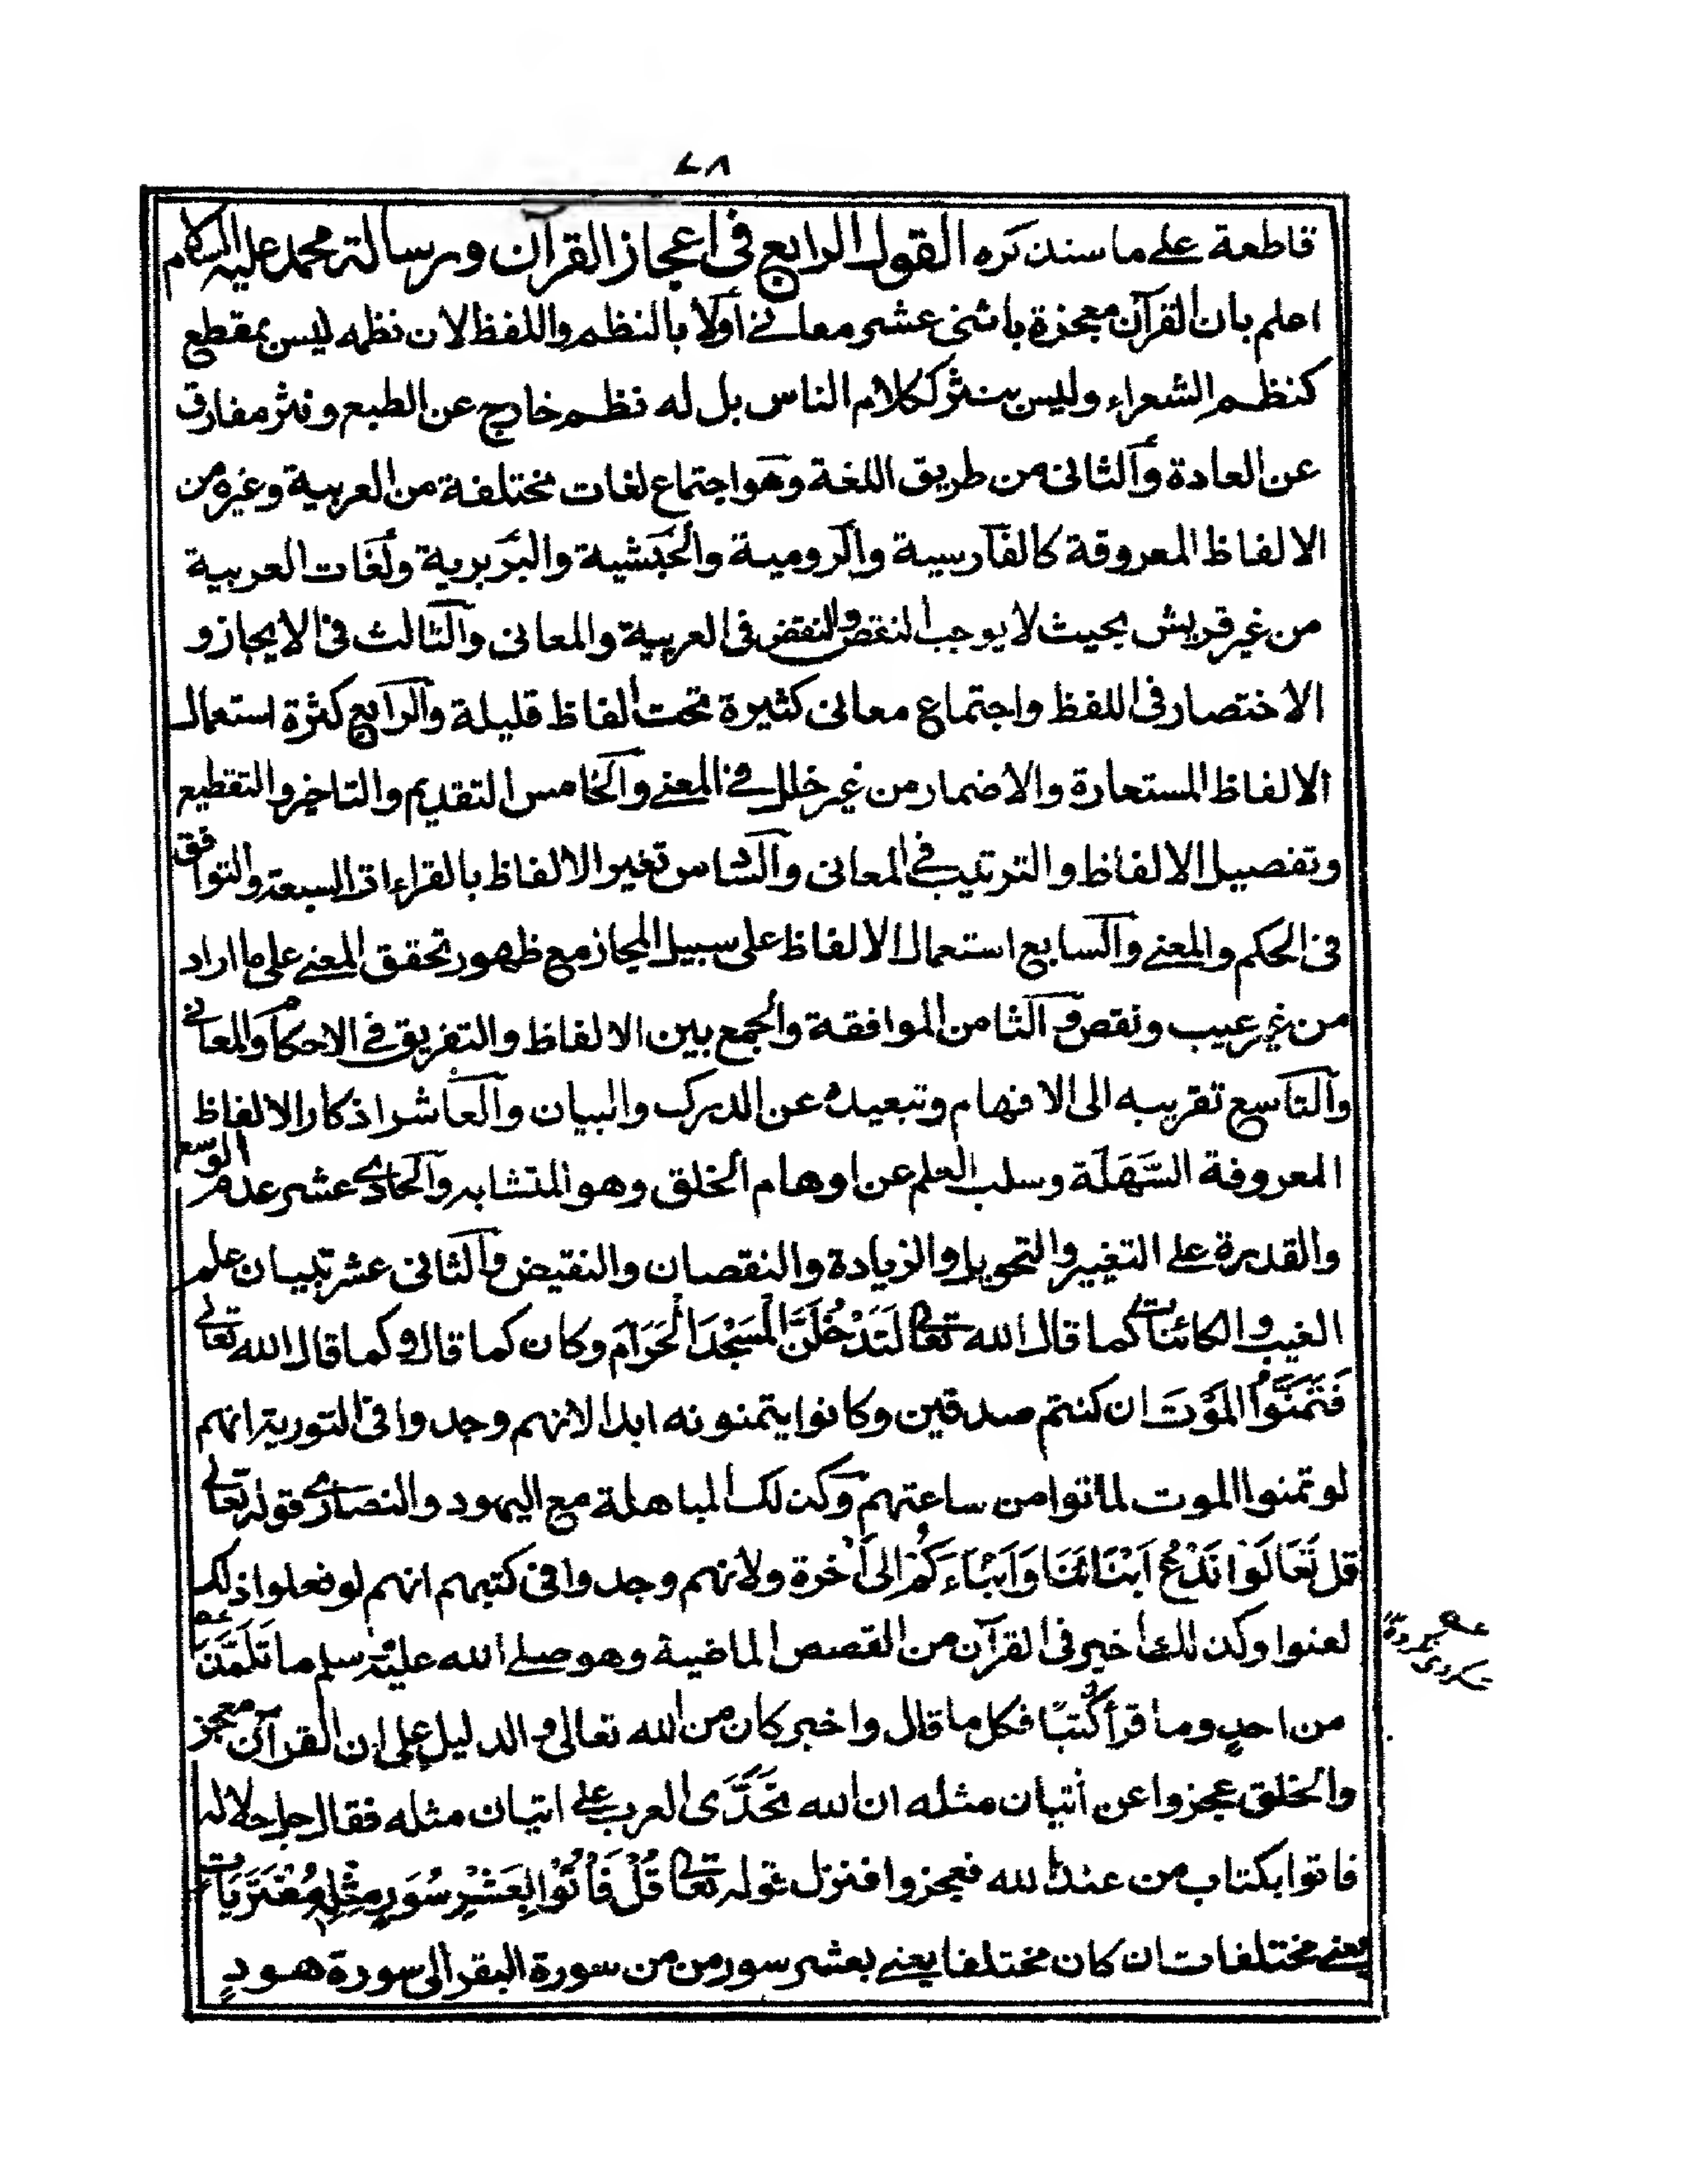 ٤٨
قاطعة على ما سنذكره القول الرابع فى اعجاز القران ورسالة محمد عليه السلام
اعلم بان القرآن معجزة باثنى عشر معانى أولا بالنظم واللفظ لان نظمه ليس بمقطع
كنظم الشعراء وليس بنثر ككلام الناس بل له نظم خارج عن الطبع ونثر مفارق
عن العادة وآلثانى من طريق اللغة وهو اجتماع لغات مختلفة من العربية وغيره من
الالفاظ المعروفة كالفارسية والرومية والحبشية والبربرية ولغات العربية
من غير قريش بحيث لا يوجب النقص والنقض فى العربية والمعانى وآلثالث فى الايجاز و
الاختصار فى اللفظ واجتماع معانى كثيرة تحت الفاظ قليلة وآلرابع كثرة استعمال
الالفاظ المستعارة والاضمار من غير خلل فى المعنى وآلخامس التقديم والتاخير والتقطيع
وتفصيل الالفاظ والترتيب فى المعانى وآلساس تغير الالفاظ بالقراءات السبعة والتوافق
فى الحكم والمعنى وآلسابع استعمال الالفاظ على سبيل المجاز مع ظهور تحقق المعنى على ما اراد
من غير عيب ونقص وآلثامن الموافقة والجمع بين الالفاظ والتفريق فى الاحكام والمعانى
وآلتاسع تقريبه الى الافهام وتبعيده عن الدرك والبيان وآلعاشر اذكار الالفاظ
المعروفة السَّهَلَة وسلب العلم عن اوهام الخلق وهو المتشابه وآلحادى عشر عدم الوسع
والقدرة على التغيير والتحويل والزيادة والنقصان والنقيض وآلثانى عشر تبيان علم
الغيب والكائنات كما قال الله تعالى لَتَدْخُلُنَّ الْمَسْجِدَ الْحَرَامَ وكان كما قال وكما قال الله تعالى
فَتَمَنَّوُا الْمَوْتَ ان كنتم صدقين وكانوا يتمنونه ابدا لانهم وجدوا فى التورية انهم
لو تمنوا الموت لماتوا من ساعتهم وكذلك المباهلة مع اليهود والنصارى قوله تعالى
قل تَعَالَوْا نَدْعُ اَبْنَائَنَا وَاَبْنَاءَكُمْ الى آخرة ولانهم وجدوا فى كتبهم انهم لو فعلوا ذلك
لعنوا وكذلك اخبر فى القرآن من القصص الماضية وهو صلى الله عليه وسلم ما تَلَمَّذَ
من احدٍ وما قرأ كُتبًا فكل ما قال واخبر كان من الله تعالى والدليل على ان القرآن معجز
والخلق عجزوا عن أتيان مثله ان الله تَحَدَّى العرب على اتيان مثله فقال جل جلاله
فاتوا بكتاب من عند الله فعجزوا فنزل قوله تعالى قُلْ فَأْتُوْا بِعَشْرِ سُوَرٍ مِثْلِهِ مُفْتَرَيَاتٍ
يعنى مختلفات ان كان مختلفا يعنى بعشر سور من من سورة البقر الى سورة هودٍ